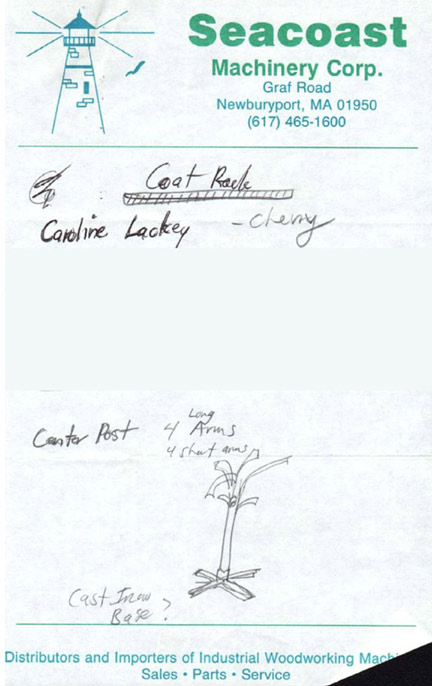 Seacoast
Machinery Corp.
Graf Road
Newburyport, MA 01950
(617) 465-1600
Coat Rack
Caroline Lackey - Cherry
Long
Center Post 4 Arms
4 short arms
Cast Iron
Base ?
Distributors and Importers of Industrial Woodworking
Sales • Parts • Service